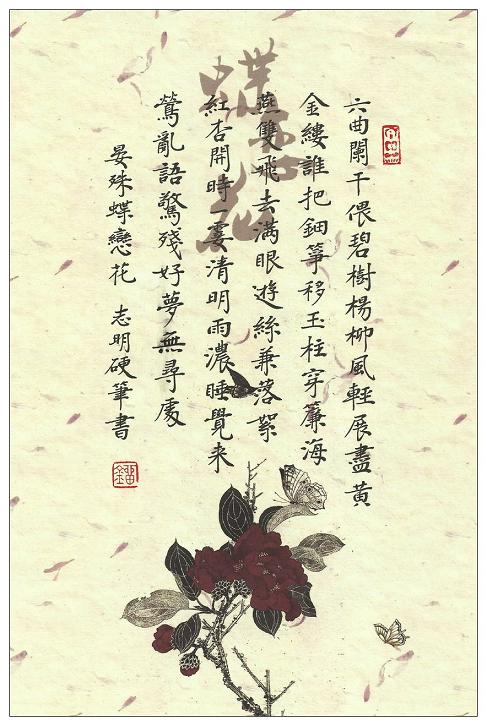 六曲闌干偎碧樹楊柳風輕展盡黃
金縷誰把鈿箏移玉柱穿簾海
燕雙飛去满眼遊絲兼落絮
紅杏開時一霎清明雨濃睡覺来
鶯亂語驚殘好夢無尋處
晏殊蝶戀花 志明硬筆書